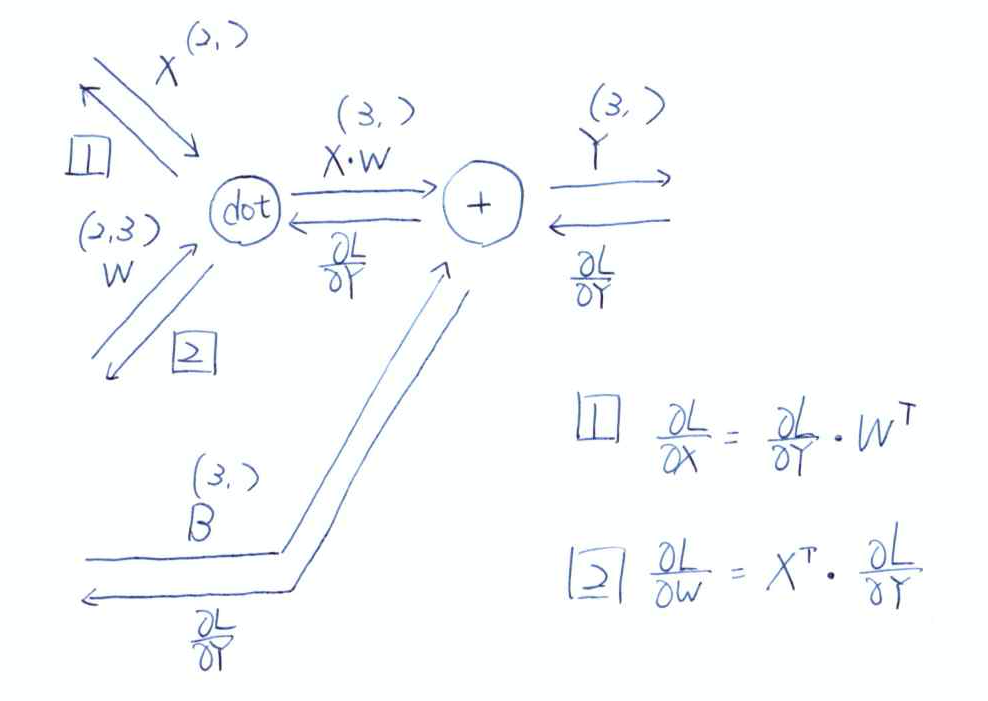 X (2,)
1
(2,3)
W
2
dot
(3,)
X·W
∂L/∂Y
+
(3,)
Y
∂L/∂Y
(3,)
B
∂L/∂Y
1 ∂L/∂X = ∂L/∂Y · Wᵀ
2 ∂L/∂W = Xᵀ · ∂L/∂Y